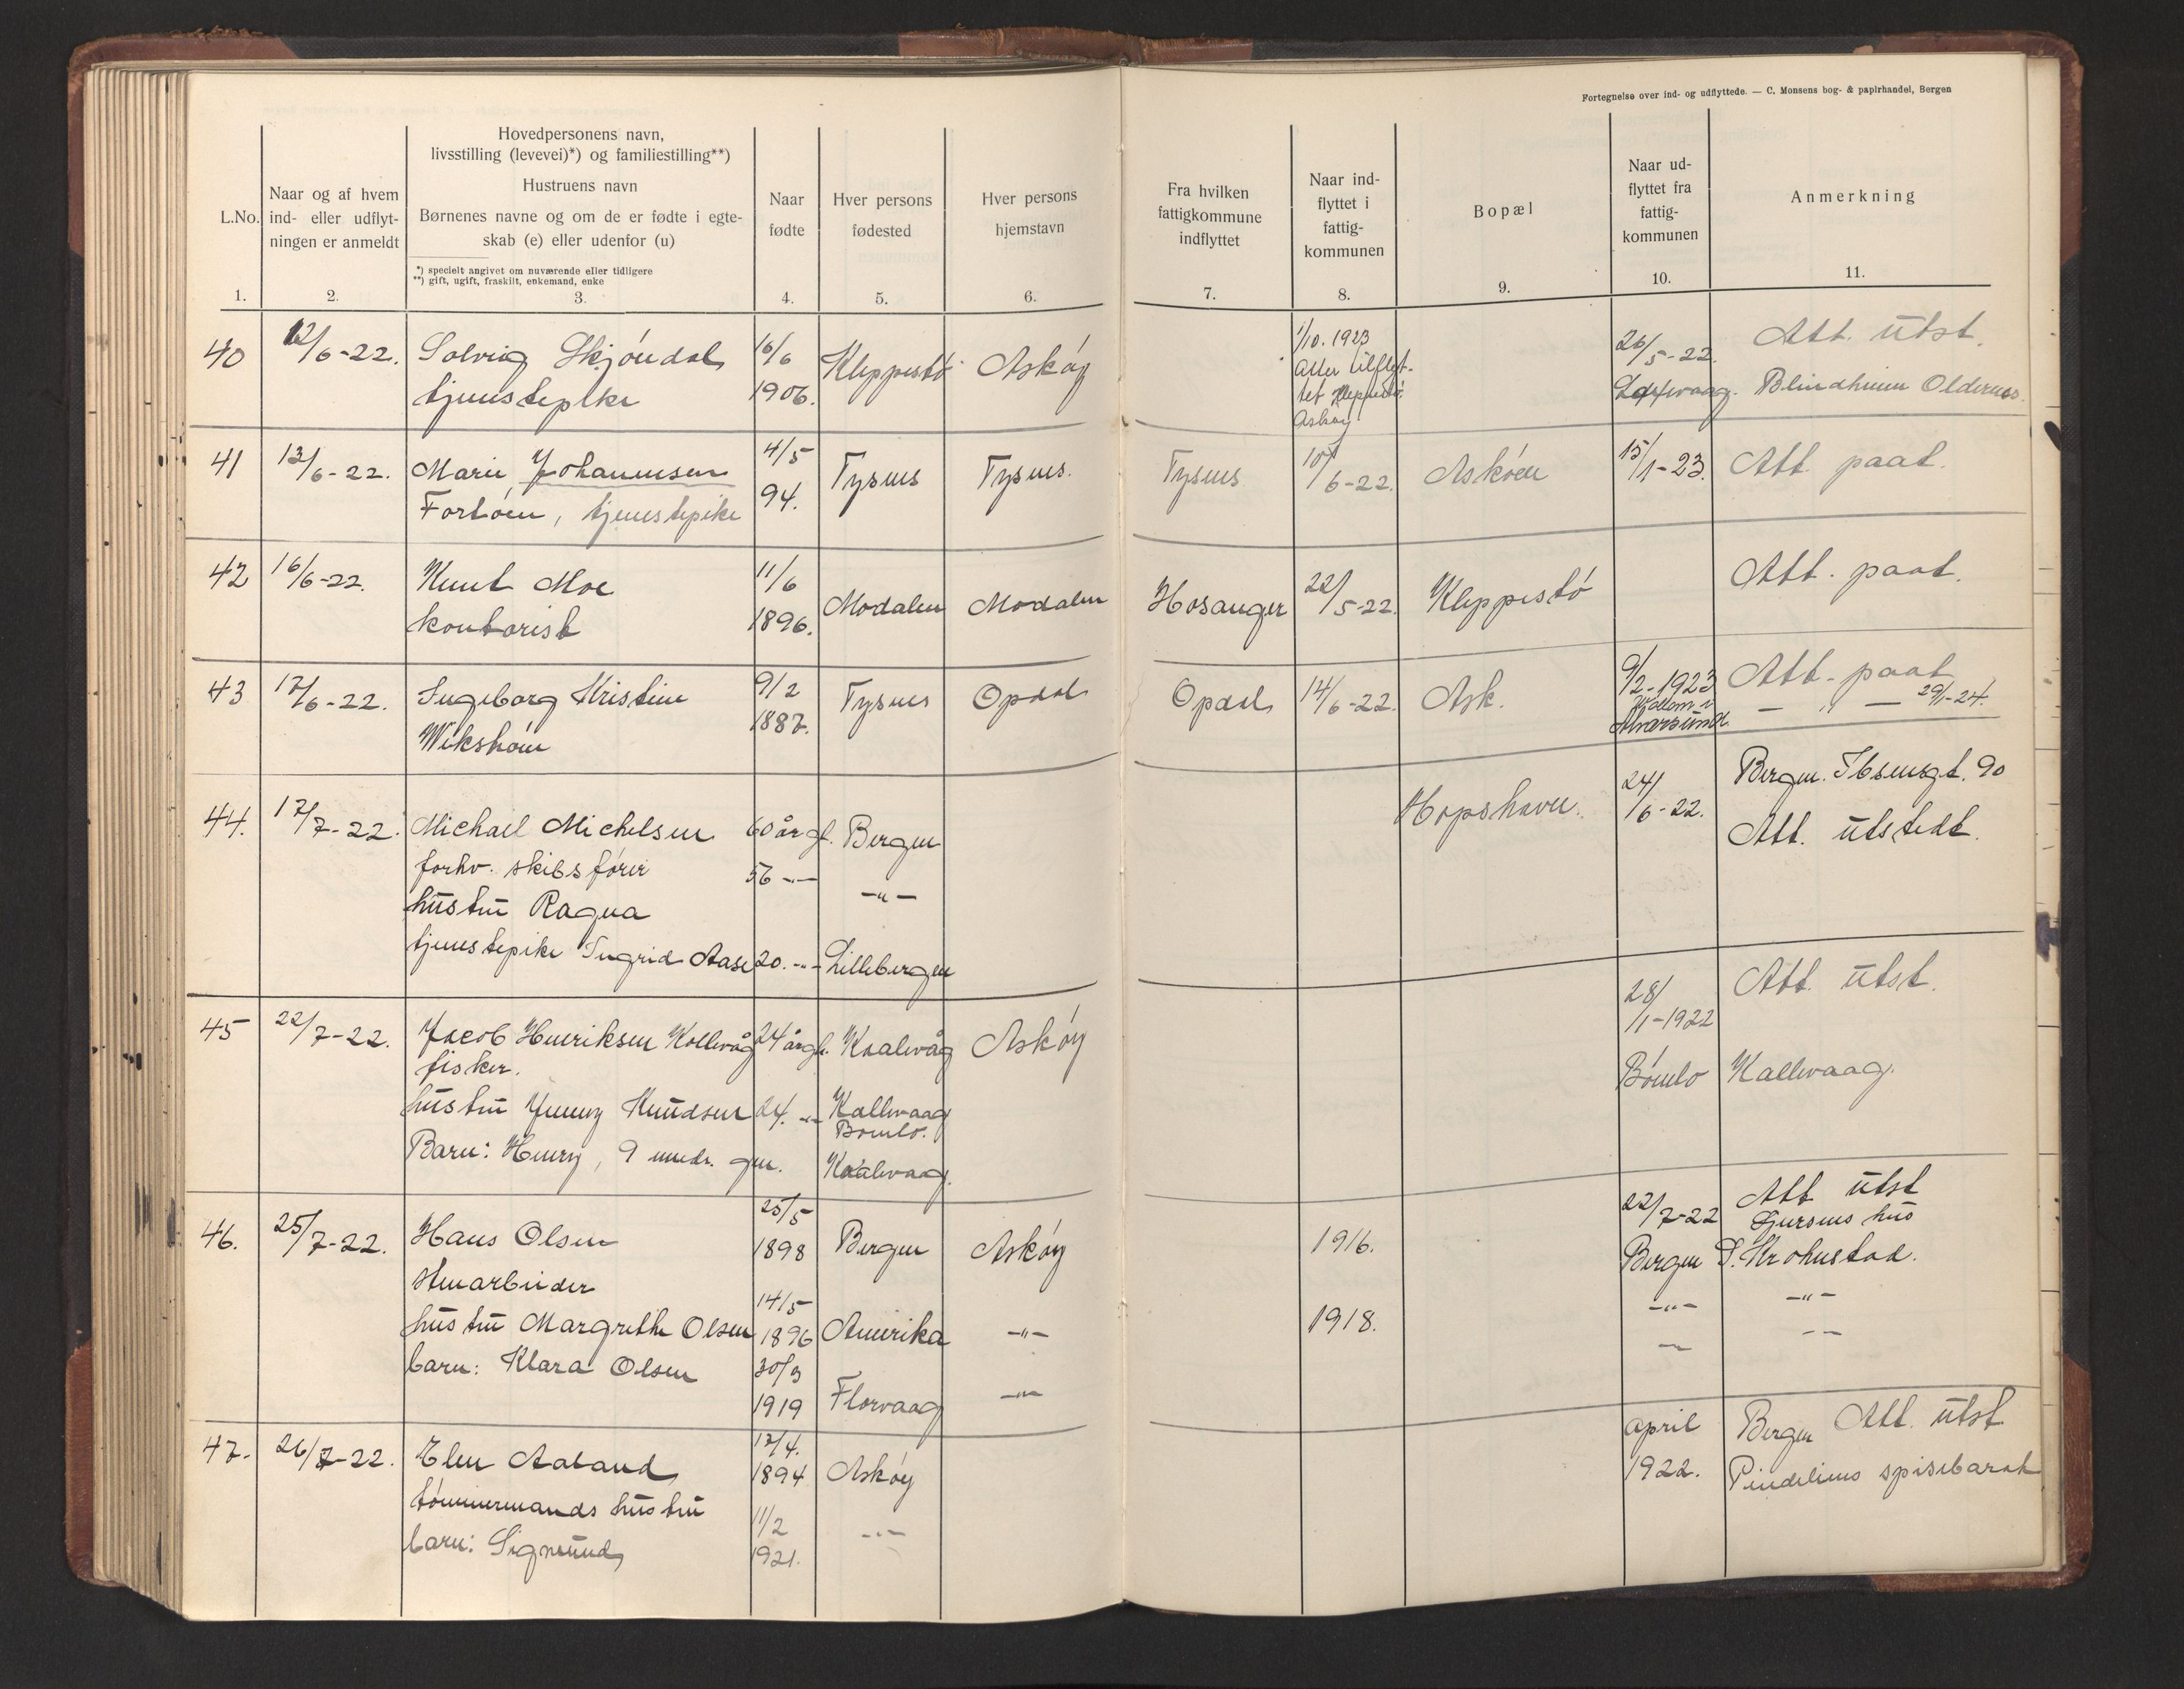 Fortegnelse over ind- og udflyttede. — C. Monsens bog- & papirhandel, Bergen
L.No.
1.
Naar og af hvem
ind- eller udflyt-
ningen er anmeldt
2.
Hovedpersonens navn,
livsstilling (levevei)*) og familiestilling**)
Hustruens navn
Børnenes navne og om de er fødte i egte-
skab (e) eller udenfor (u)
*) specielt angivet om nuværende eller tidligere
**) gift, ugift, fraskilt, enkemand, enke
3.
Naar
fødte
4.
Hver persons
fødested
5.
Hver persons
hjemstavn
6.
Fra hvilken
fattigkommune
indflyttet
7.
Naar ind-
flyttet i
fattig-
kommunen
8.
Bopæl
9.
Naar ud-
flyttet fra
fattig-
kommunen
10.
Anmerkning
11.
40
12/6-22.
Solveig Skjöndal
tjenestepike
16/6
1906.
Kleppestö
Asköy
1/10. 1923
Atter tilflyt-
tet Kleppestö
Asköy
26/5-22.
Laxevaag.
Att. utst.
Blindheim Oldernes.
41
13/6-22.
Marie Johannesen
Fortöen, tjenestepike
4/5
94.
Tysnes
Tysnes.
Tysnes
10/6-22.
Asköen
15/1-23.
Att. paat.
42
16/6-22.
Knut Moe
kontorist
11/6
1896.
Modalen
Modalen
Hosanger
22/5-22.
Kleppestö
Att. paat.
43
17/6-22.
Ingeborg Kristine
Wikshöm
9/2
1887.
Tysnes
Opdal
Opdal
14/6-22.
Ask.
9/2-1923
Alvarsund.
Att. paat
— " — 29/1-24.
44.
17/7-22.
Michael Michelsen
forhv. skibsförer
hustru Ragna
tjenestepike Ingrid Aase
60 år gl.
56 -"-
20. -"-
Bergen
-"-
Lillebergen
Hopshavn.
24/6-22.
Bergen. Ibsensgt. 90
Att. utstedt.
45
22/7-22.
Jacob Henriksen Kollevåg
fisker.
hustru Jenny Knudsen
Barn: Henry, 9 mndr. gm.
24 år gl.
24. -"-
Kaalevåg
Kallevaag
Bömlo.
Kaalevaag.
Asköy
28/1-1922
Bömlo
Att. utst.
Kallevaag.
46.
25/7-22.
Hans Olsen
stenarbeider
hustru Margrethe Olsen
barn: Klara Olsen
25/5
1898
14/5
1896
30/3
1919
Bergen
Amerika
Florvaag
Asköy
-"-
-"-
1916.
1918.
22/7-22
Bergen
-"-
Att utst
Gjersens hus
S. Krohnstad.
-"-
47.
26/7-22.
Elen Aaland
tömmermands hustru
barn: Sigmund
17/4.
1894
11/2
1921.
Asköy
-"-
april
1922.
Bergen Att. utst
Pindelins spisebarak